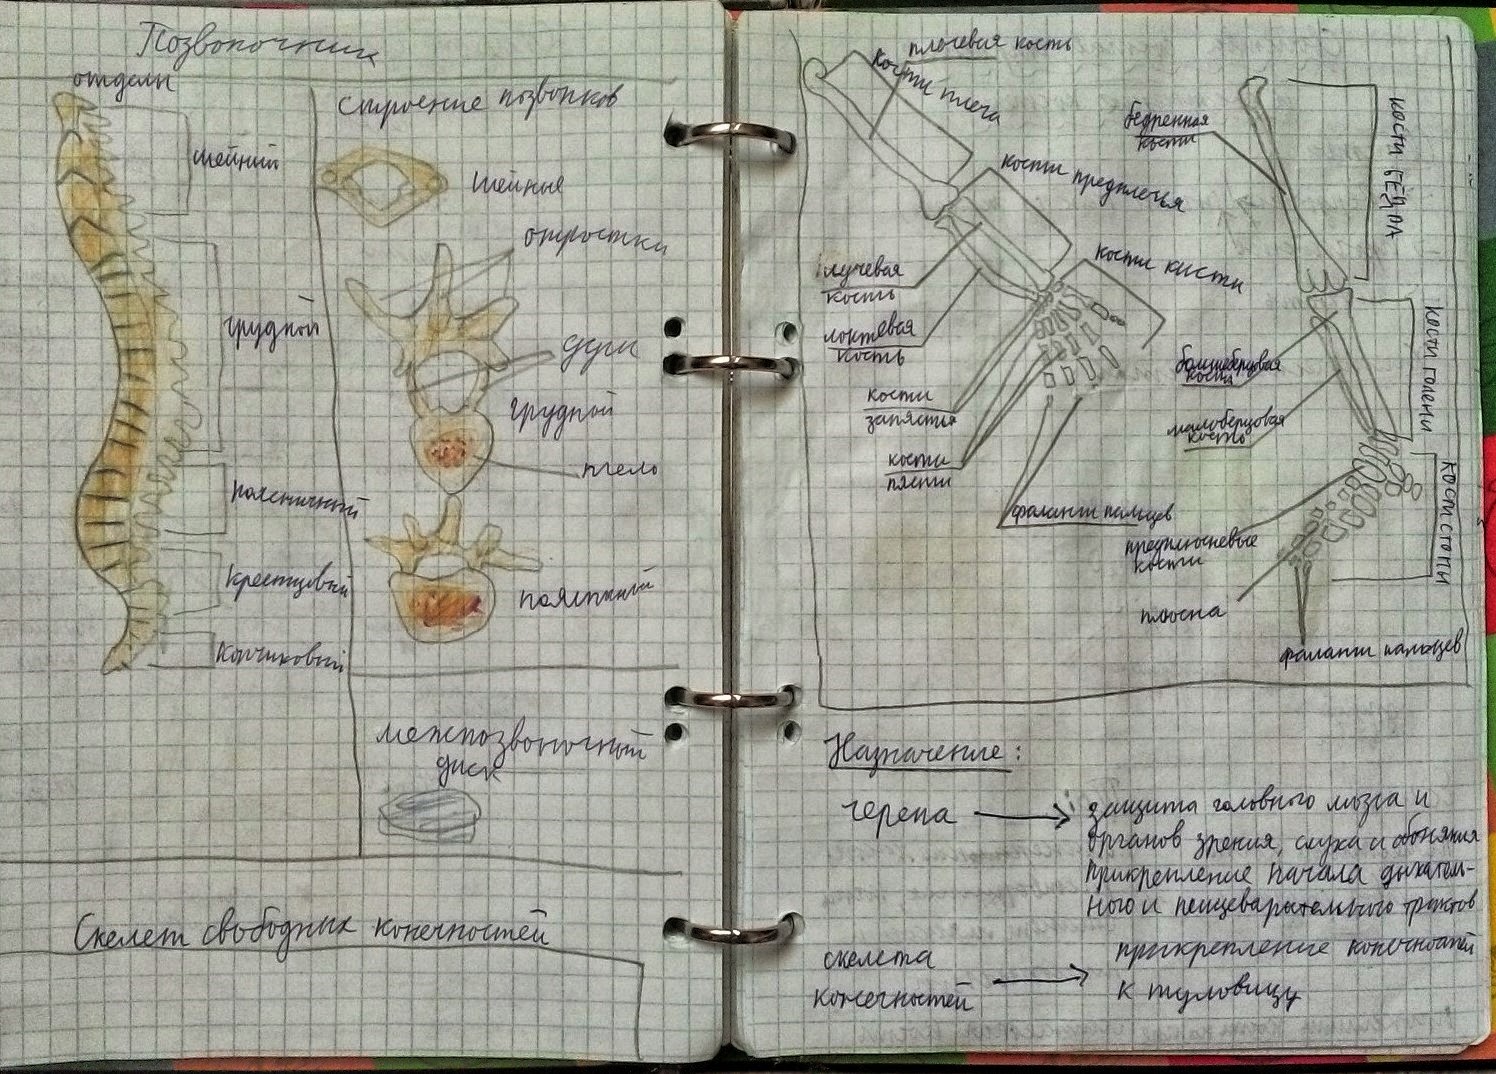 Позвоночник
отделы
шейный
грудной
поясничный
крестцовый
Копчиковый
строение позвонков
шейные
отростки
дуги
грудной
тело
межпозвоночный
диск
Скелет свободных конечностей
плечевая кость
кости плеча
кости предплечья
кости кисти
лучевая
кость
локтевая
кость
кости
запястья
кости
пясти
фаланги пальцев
бедренная
кости БЕДРА
кости голени
кости стопы
большеберцовая
кость
малоберцовая
кость
предплюсневые
кости
плюсна
фаланги пальцев
Назначение:
черепа
защита головного мозга и
органов зрения, слуха и обоняния
прикрепление начала дыхатель-
ного и пищеварительного трактов
скелета
конечностей
прикрепление конечностей
к туловищу